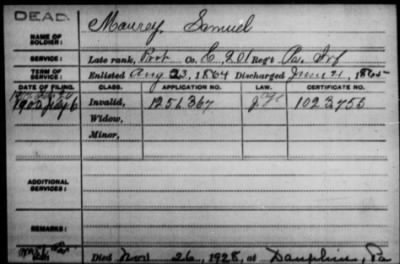 DEAD
NAME OF SOLDIER: Maurey, Samuel
SERVICE: Late rank, Pvt Co. E, 201 Reg't Pa. Inf
TERM OF SERVICE: Enlisted Aug 23, 1864 Discharged June 21, 1865
DATE OF FILING. CLASS. APPLICATION NO. LAW. CERTIFICATE NO.
1900 Invalid, 1251367 1023756
Widow,
Minor,
ADDITIONAL SERVICES:
REMARKS:
Died Nov 26, 1928, at Dauphin, Pa